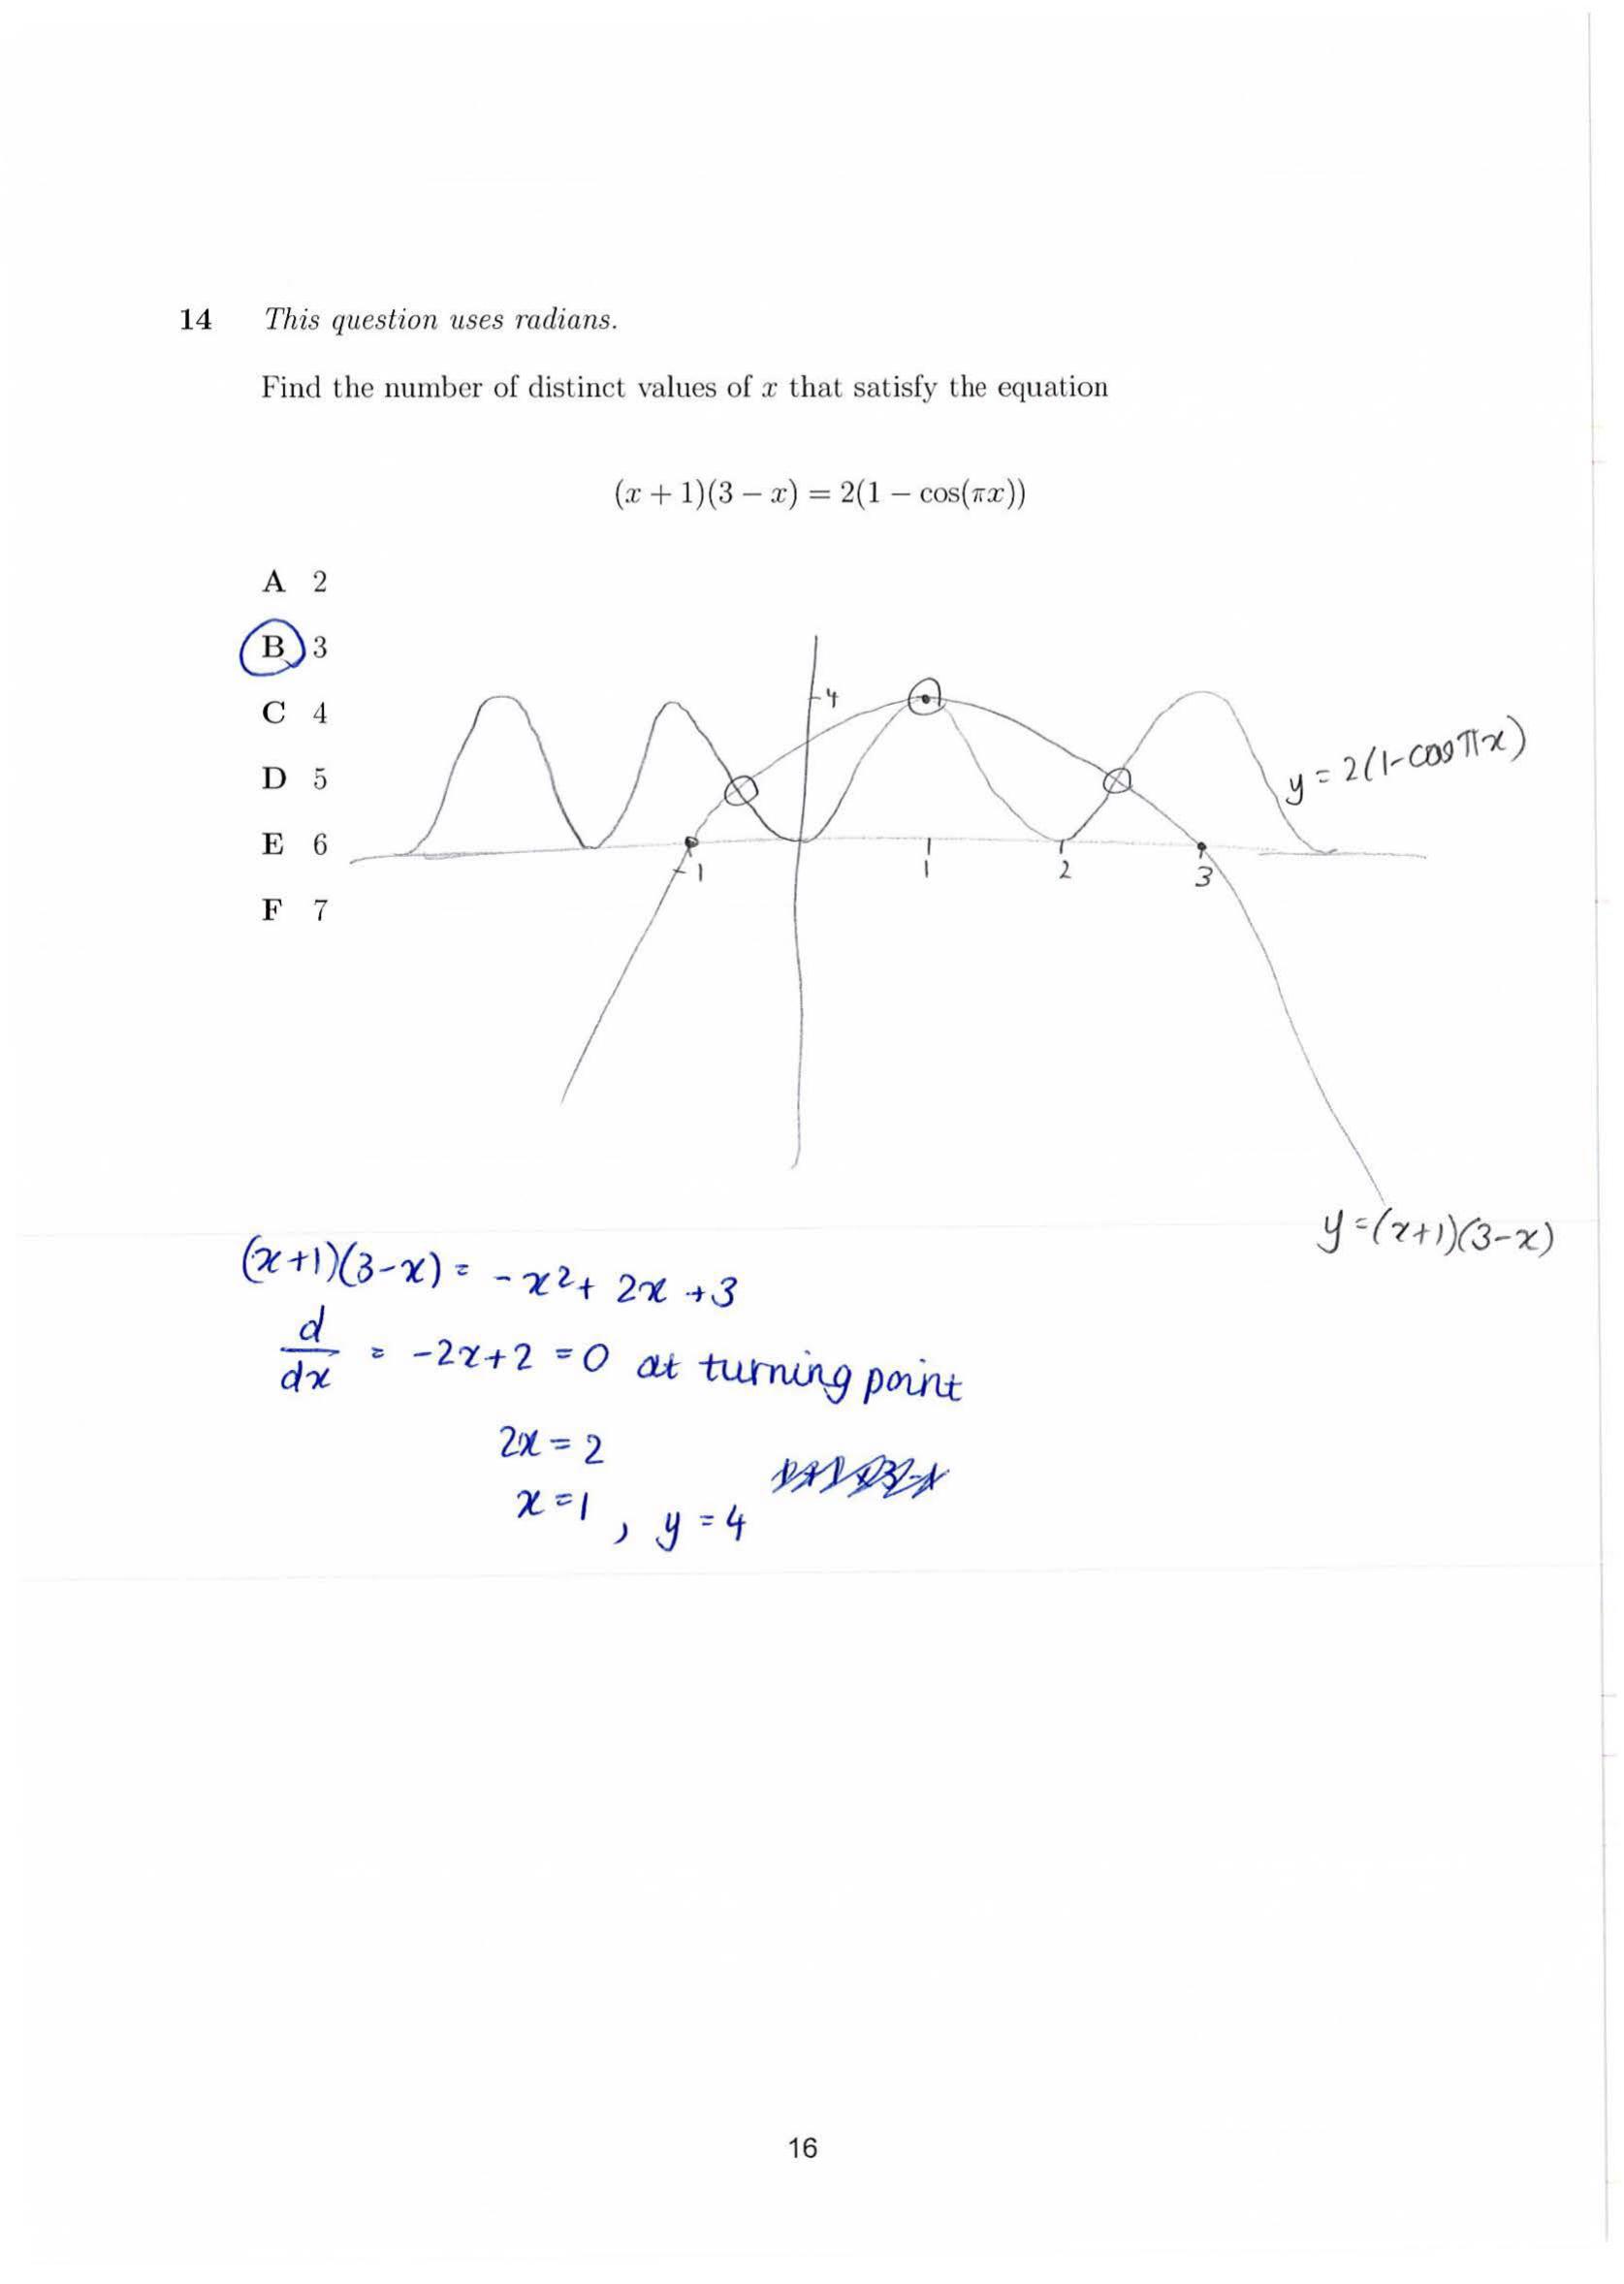 14 This question uses radians.
Find the number of distinct values of x that satisfy the equation
(x + 1)(3 − x) = 2(1 − cos(πx))
A 2
B 3
C 4
D 5
E 6
F 7
4
y = 2(1-cos πx)
-1 1 2 3
y = (x+1)(3-x)
(x+1)(3-x) = -x² + 2x + 3
d/dx = -2x+2 = 0 at turning point
2x = 2
x = 1 , y = 4
16